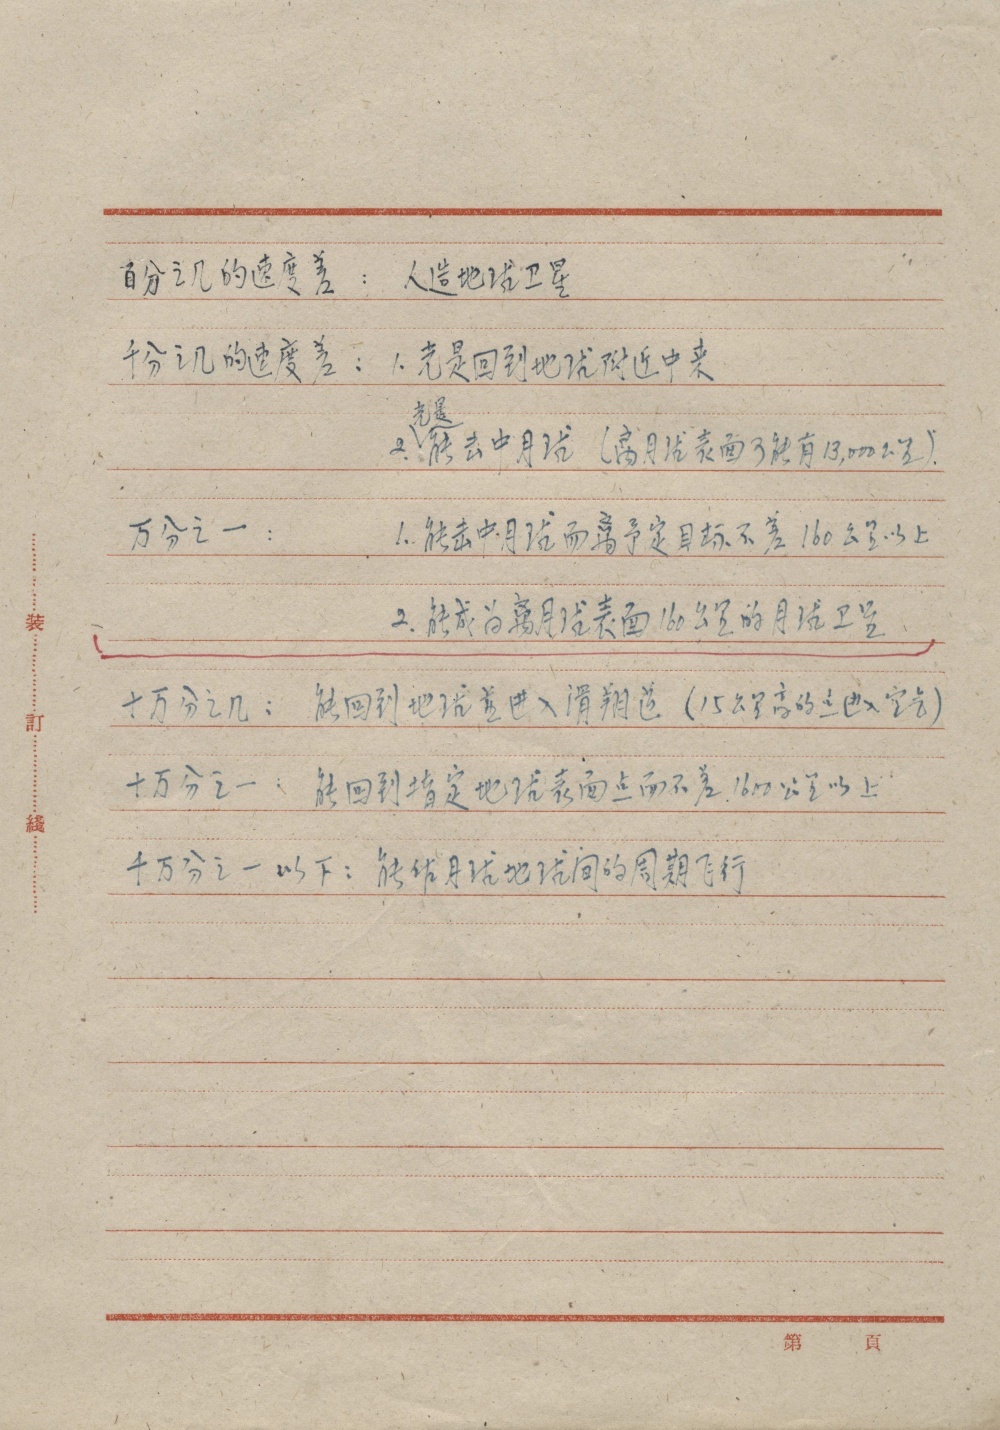 百分之几的速度差： 人造地球卫星
千分之几的速度差：1. 光是回到地球附近中来
光是
2. 能击中月球（离月球表面可能有13,000公里）.
万分之一： 1. 能击中月球而离予定目标不差160公里以上
2. 能成为离月球表面160公里的月球卫星
十万分之几： 能回到地球并进入滑翔道（15公里高的点进入定会）
十万分之一： 能回到指定地球表面点而不差1600公里以上
千万分之一以下：能作月球地球间的周期飞行
装
訂
綫
第 頁